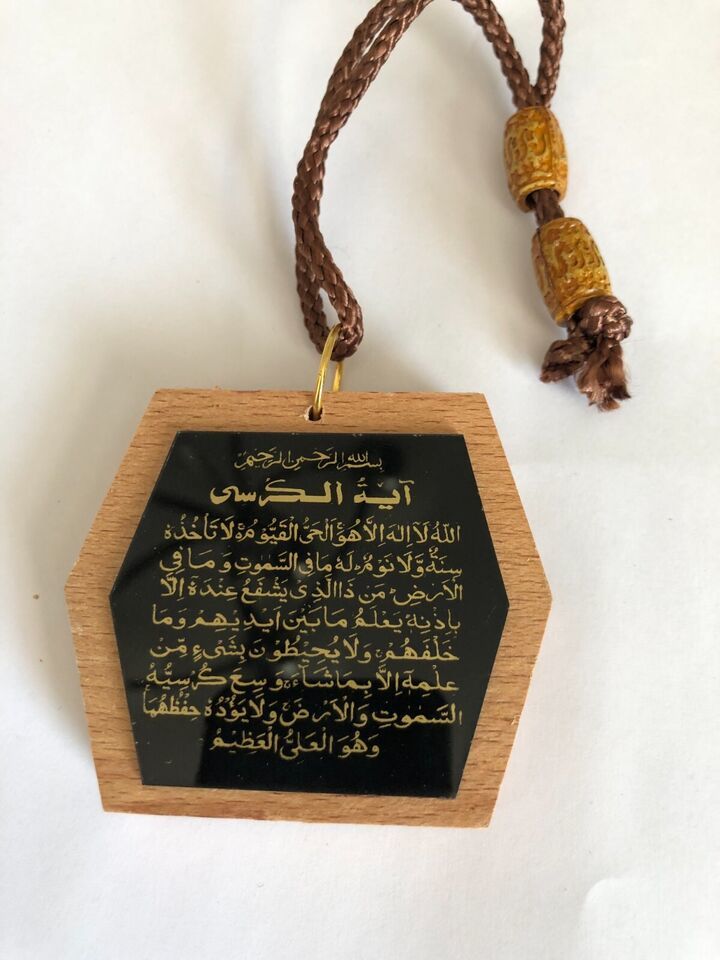 بسم الله الرحمن الرحيم
آية الكرسى
اَللهُ لَآ اِلٰهَ اِلَّا هُوَ اَلْحَىُّ الْقَيُّوْمُ لَا تَأْخُذُهٗ
سِنَةٌ وَّلَا نَوْمٌ لَهٗ مَا فِى السَّمٰوٰتِ وَمَا فِى
الْاَرْضِ مَنْ ذَا الَّذِىْ يَشْفَعُ عِنْدَهٗ اِلَّا
بِاِذْنِهٖ يَعْلَمُ مَا بَيْنَ اَيْدِيْهِمْ وَمَا
خَلْفَهُمْ وَلَا يُحِيْطُوْنَ بِشَىْءٍ مِّنْ
عِلْمِهٖ اِلَّا بِمَا شَآءَ وَسِعَ كُرْسِيُّهُ
السَّمٰوٰتِ وَالْاَرْضَ وَلَا يَؤُدُهٗ حِفْظُهُمَا
وَهُوَ الْعَلِىُّ الْعَظِيْمُ